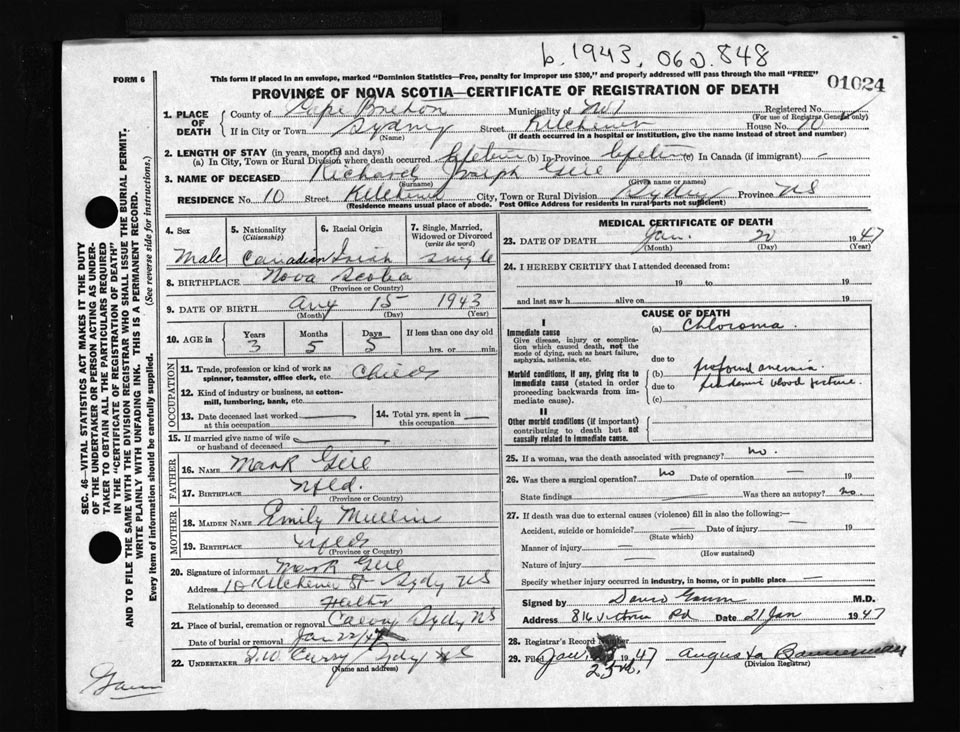 b. 1943. 06 2. 848
FORM 6
This form if placed in an envelope, marked "Dominion Statistics—Free, penalty for improper use $300," and properly addressed will pass through the mail "FREE"
01024
PROVINCE OF NOVA SCOTIA—CERTIFICATE OF REGISTRATION OF DEATH
1. PLACE OF DEATH
County of Cape Breton Municipality of No 1 Registered No.
(For use of Registrar General only)
If in City or Town Sydney Street Kitchener House No. 10
(Name) (If death occurred in a hospital or institution, give the name instead of street and number)
2. LENGTH OF STAY (in years, months and days)
(a) In City, Town or Rural Division where death occurred lifetime (b) In Province lifetime (c) In Canada (if immigrant) —
3. NAME OF DECEASED Richard Joseph
(Surname) (Given name or names)
RESIDENCE No. 10 Street Kitchener City, Town or Rural Division Sydney Province NS
(Residence means usual place of abode. Post Office Address for residents in rural parts not sufficient)
4. Sex
Male
5. Nationality
(Citizenship)
Canadian
6. Racial Origin
Irish
7. Single, Married, Widowed or Divorced
(write the word)
Single
8. BIRTHPLACE Nova Scotia
(Province or Country)
9. DATE OF BIRTH Aug 15 1943
(Month) (Day) (Year)
10. AGE in
Years 3
Months 5
Days 5
If less than one day old
hrs. or min.
OCCUPATION
11. Trade, profession or kind of work as spinner, teamster, office clerk, etc. Child
12. Kind of industry or business, as cotton-mill, lumbering, bank, etc.
13. Date deceased last worked at this occupation
14. Total yrs. spent in this occupation
15. If married give name of wife or husband of deceased
FATHER
16. NAME Mark
17. BIRTHPLACE Nfld.
(Province or Country)
MOTHER
18. MAIDEN NAME Emily Mullin
19. BIRTHPLACE Nfld
(Province or Country)
20. Signature of informant Mark
Address 10 Kitchener St Sydy NS
Relationship to deceased Father
21. Place of burial, cremation or removal Calvary Sydy NS
Date of burial or removal Jan 22/47
22. UNDERTAKER Curry Sydy NS
(Name and address)
MEDICAL CERTIFICATE OF DEATH
23. DATE OF DEATH Jan. 20 1947
(Month) (Day) (Year)
24. I HEREBY CERTIFY that I attended deceased from:
19 to 19
and last saw h alive on 19
CAUSE OF DEATH
I
Immediate cause
Give disease, injury or complication which caused death, not the mode of dying, such as heart failure, asphyxia, asthenia, etc.
(a) Chloroma.
due to
Morbid conditions, if any, giving rise to immediate cause (stated in order proceeding backwards from immediate cause).
(b) profound anemia
due to blood picture.
(c)
II
Other morbid conditions (if important) contributing to death but not causally related to immediate cause.
25. If a woman, was the death associated with pregnancy? no.
26. Was there a surgical operation? no Date of operation — 19
State findings Was there an autopsy? no
27. If death was due to external causes (violence) fill in also the following:—
Accident, suicide or homicide? Date of injury 19
(State which)
Manner of injury
(How sustained)
Nature of injury
Specify whether injury occurred in industry, in home, or in public place
Signed by M.D.
Address 816 Victoria Rd Date 21 Jan 1947
28. Registrar's Record Number
29. Filed Jan. 1947 Augusta Bannerman
25th. (Division Registrar)
SEC. 46—VITAL STATISTICS ACT MAKES IT THE DUTY OF THE UNDERTAKER OR PERSON ACTING AS UNDERTAKER TO OBTAIN ALL THE PARTICULARS REQUIRED IN THE "CERTIFICATE OF REGISTRATION OF DEATH" AND TO FILE THE SAME WITH THE DIVISION REGISTRAR WHO SHALL ISSUE THE BURIAL PERMIT.
WRITE PLAINLY WITH UNFADING INK. THIS IS A PERMANENT RECORD.
Every item of information should be carefully supplied. (See reverse side for instructions.)